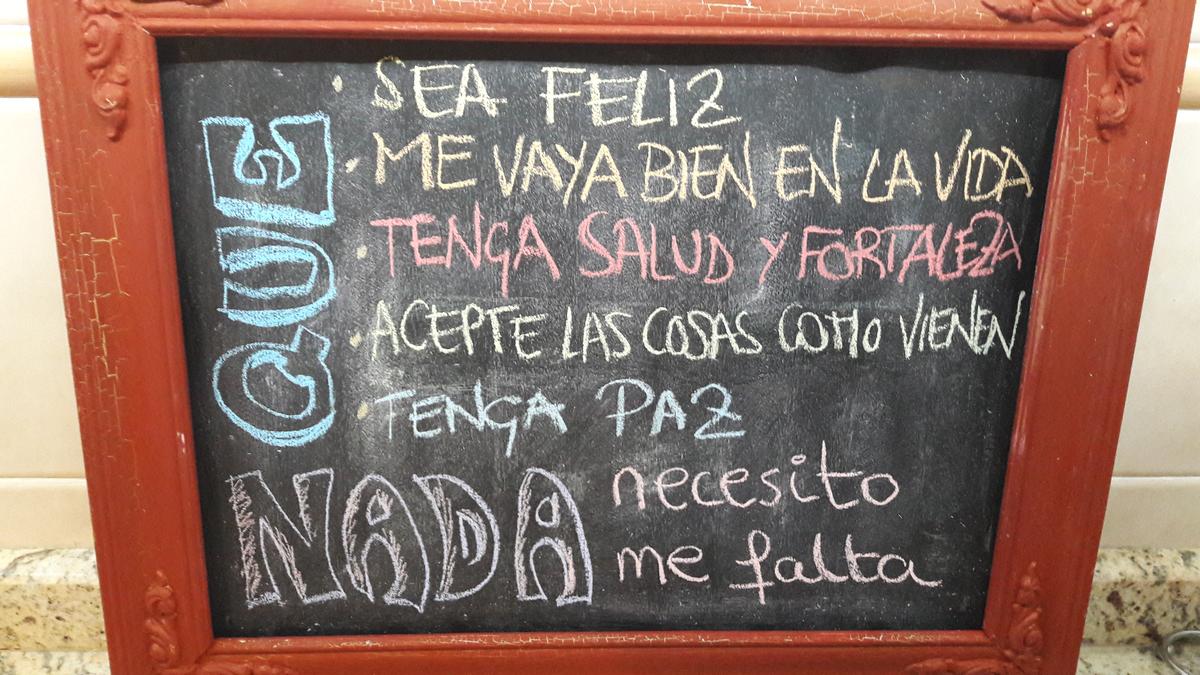 QUE
· SEA FELIZ
· ME VAYA BIEN EN LA VIDA
· TENGA SALUD Y FORTALEZA
· ACEPTE LAS COSAS COMO VIENEN
· TENGA PAZ
NADA necesito
me falta